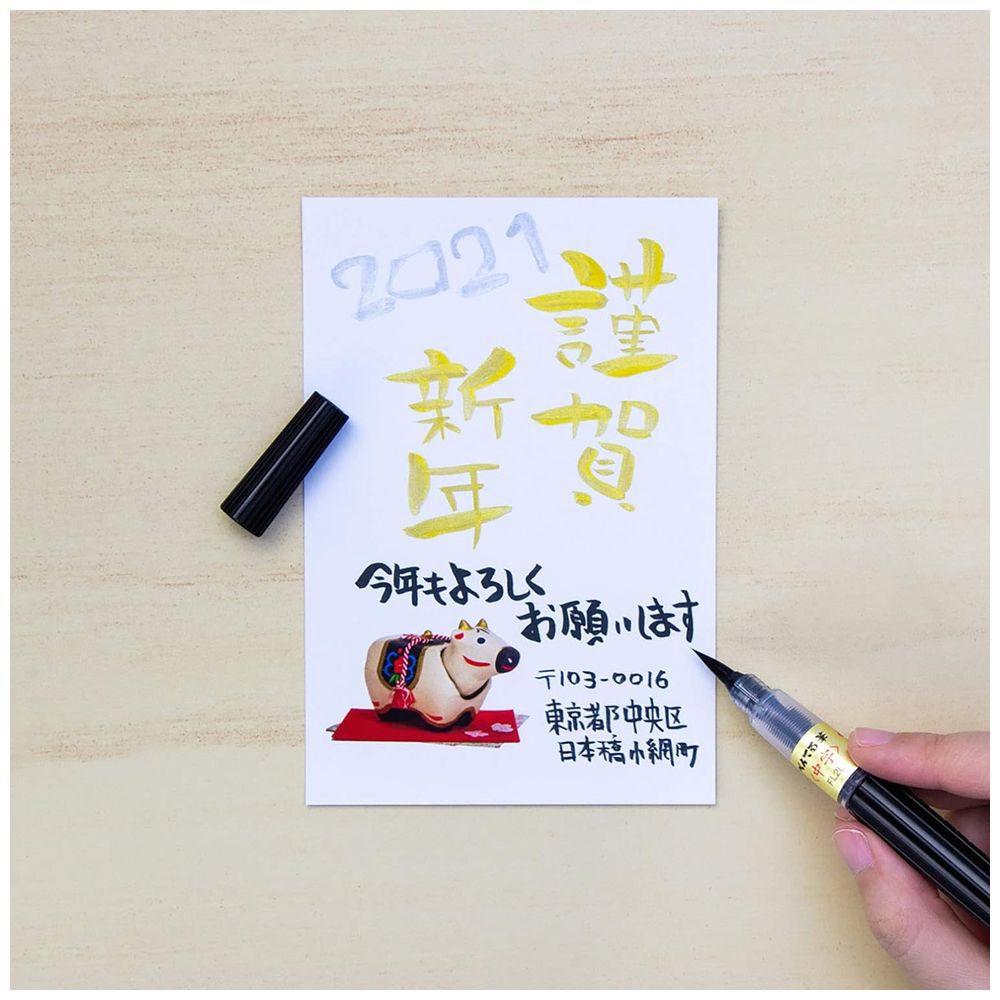 2021
謹賀
新年
今年もよろしく
お願いします
〒103-0016
東京都中央区
日本橋小網町
〈中字〉
FL2L